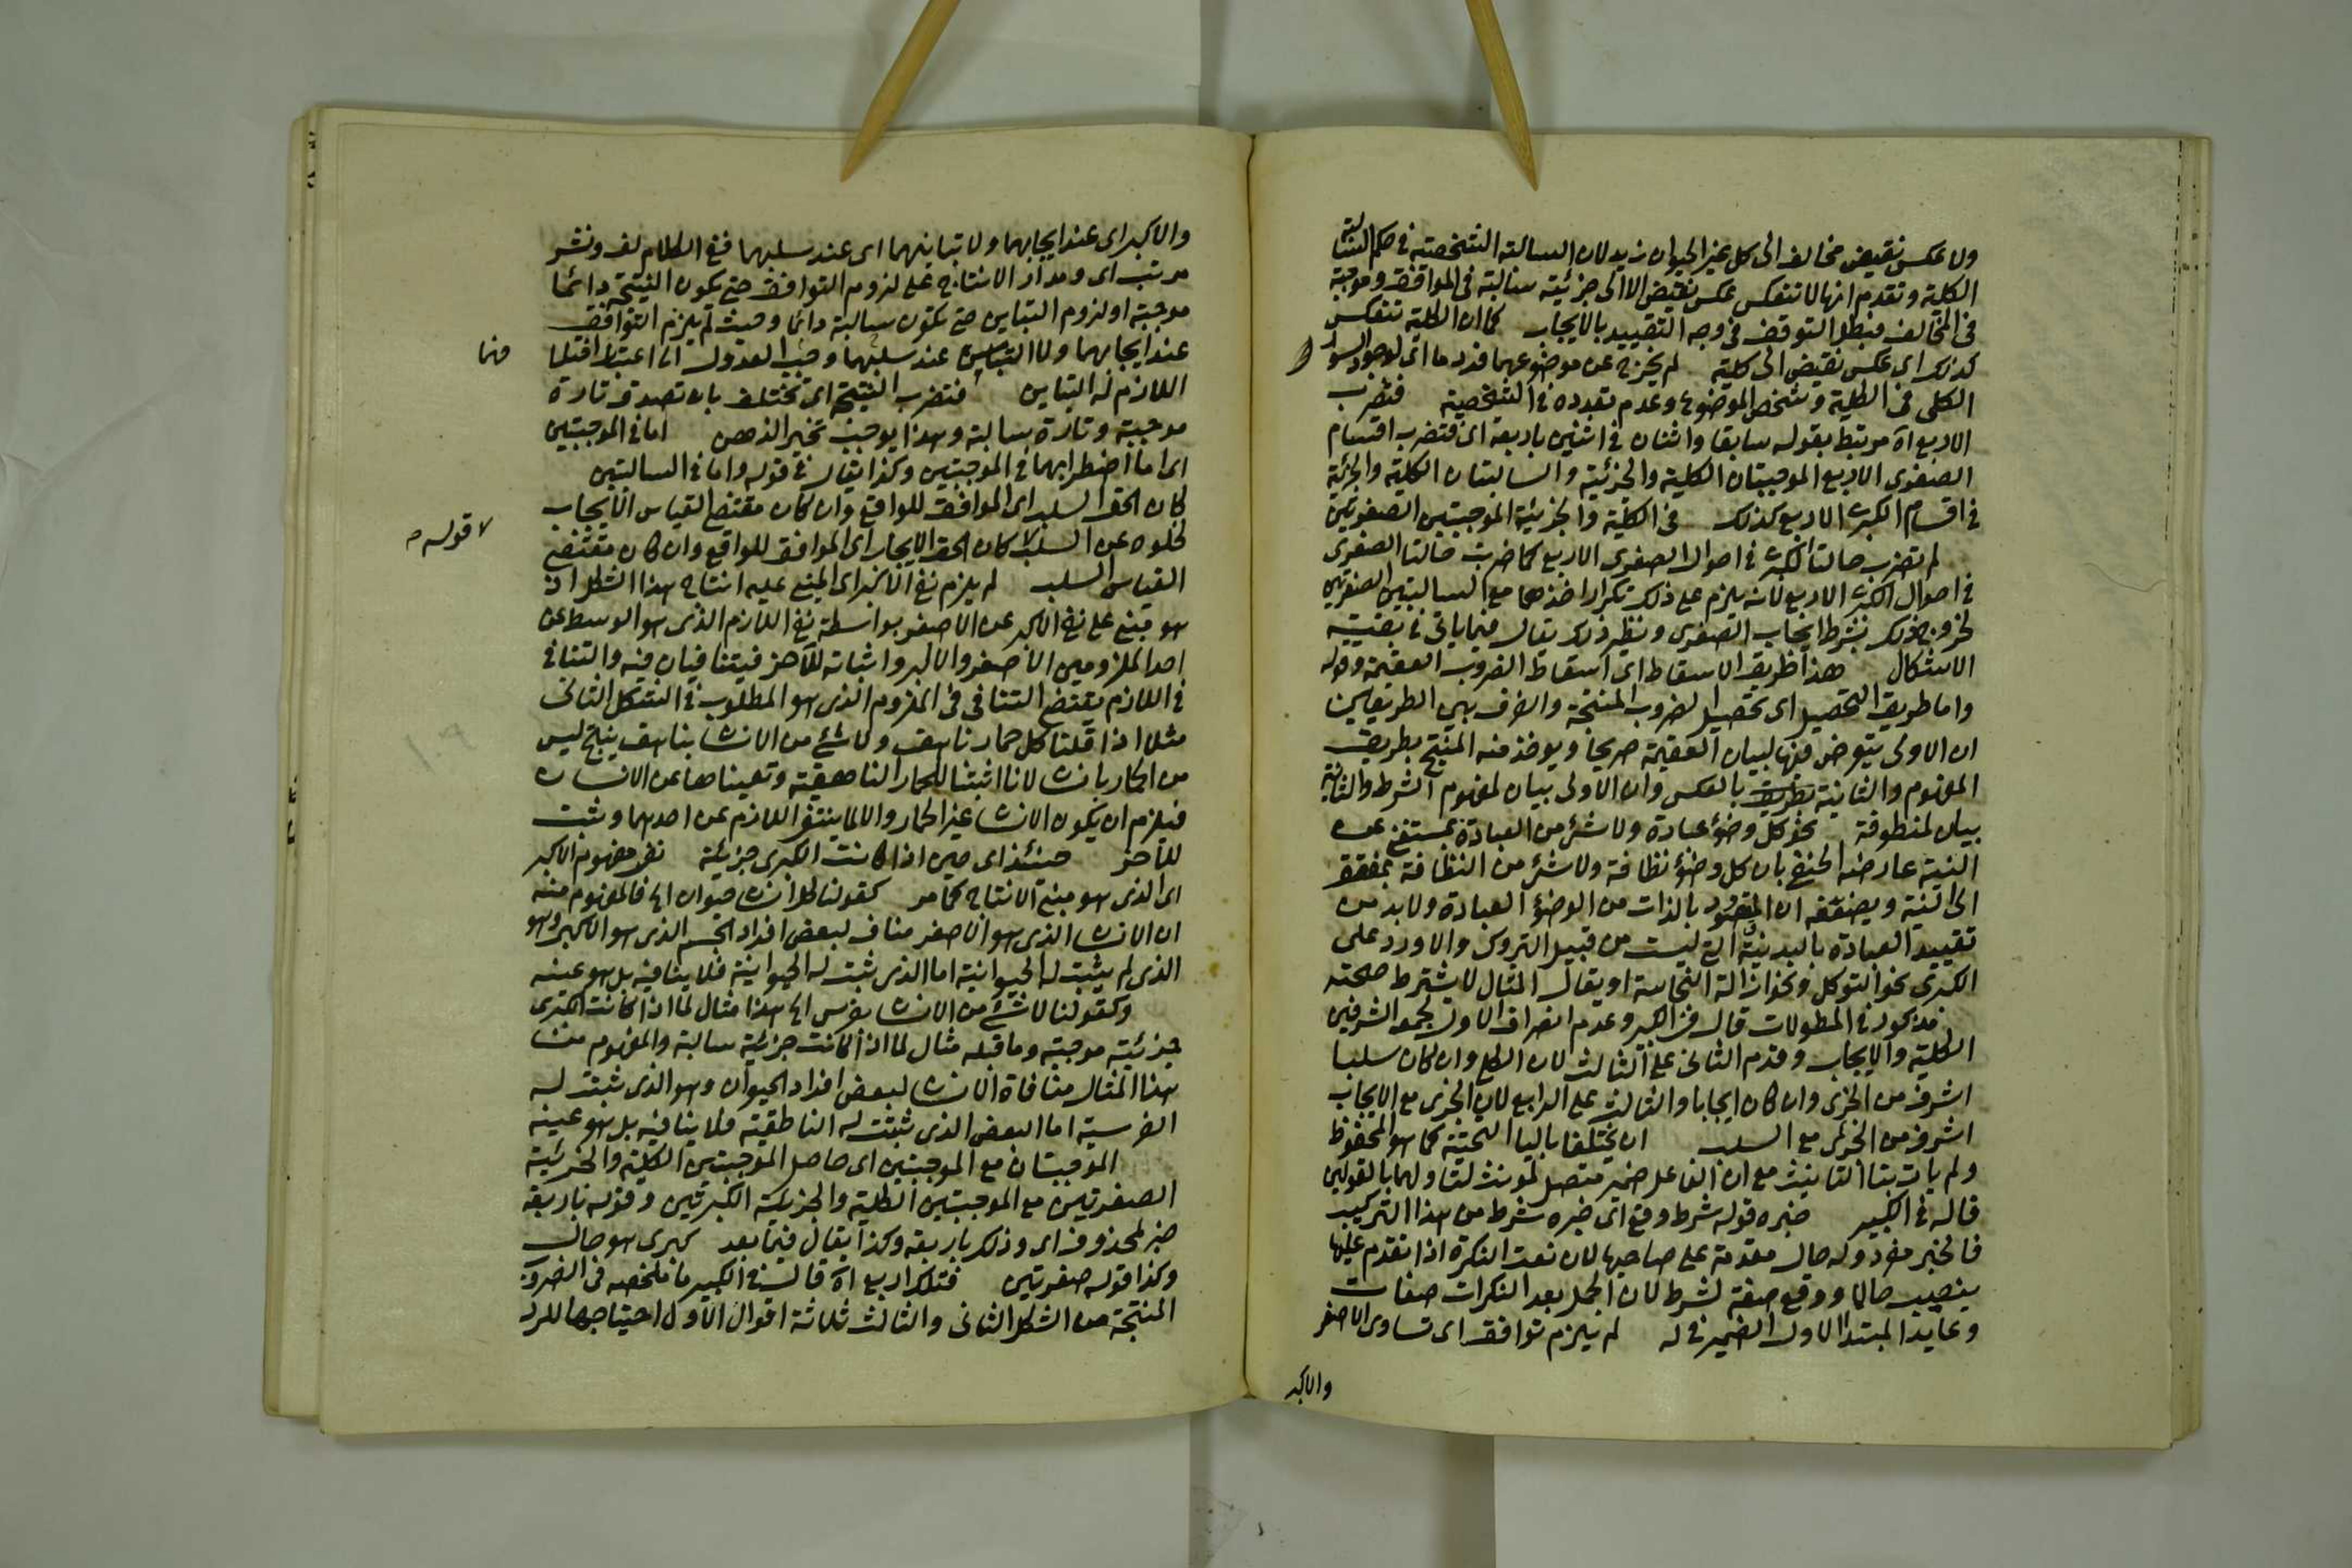 ولا عكس نقيض مخالف الى كل غير الحيوان زيد لان السالبة الشخصية في حكم السالبة
الكلية وتقدم انها لا تنعكس عكس نقيض الا الى جزئية سالبة في الموافق وموجبة
في المخالف فبطل التوقف في وجه التقييد بالايجاب كما ان الكلية تنعكس
كذلك اى عكس نقيض الى كلية لم يخرج عن موضوعهما فرد ما اى لوجود السور
الكلى في الكلية وتشخص الموضوع وعدم تعدده في الشخصية فتضرب
الاربع اه مرتبط بقوله سابقا واثنان في اثنين باربعة اى فتضرب اقسام
الصغرى الاربع الموجبتان الكلية والجزئية والسالبتان الكلية والجزئية
في اقسام الكبرى الاربع كذلك في الكلية والجزئية الموجبتين الصغريتين
لم تضرب حالتا الكبرى في احوال الصغرى الاربع كما ضربت حالتا الصغرى
في احوال الكبرى الاربع لانه يلزم على ذلك تكرار اخذهما مع السالبتين الصغريتين
لخروج ذلك بشرط ايجاب الصغرى ونظير ذلك يقال فيما ياتى في بقية
الاشكال هذا طريق الاسقاط اى اسقاط الضروب العقيمة وقوله
واما طريق التحصيل اى تحصيل الضروب المنتجة والفرق بين الطريقين
ان الاولى يتعرض فيها لبيان العقيمة صريحا ويوخذ منه المنتج بطريق
المفهوم والثانية بالعكس وان الاولى بيان لمفهوم الشرط والثانية
بيان لمنطوقه نحو كل وضوء عبادة ولا شئ من العبادة بمستغن عن
النية عارضه الحنفى بان كل وضوء نظافة ولا شئ من النظافة بمفتقر
الى النية ويضعفه ان المقصود بالذات من الوضوء العبادة ولا بد من
تقييد العبادة بالبدنية التى ليست من قبيل التروك والا ورد على
الكبرى نحو التوكل ونحو ازالة النجاسة او يقال المثال لا يشترط صحته
مذكور في المطولات قال في الكبير وعدم انصراف الاول لجمعه الشرفين
الكلية والايجاب وقدم الثانى على الثالث لان الكلى وان كان سلبا
اشرف من الجزى وان كان ايجابا والثالث على الرابع لان الجزى مع الايجاب
اشرف من الجزى مع السلب ان يختلفا بالياء التحتية كما هو المحفوظ
ولم يات بتاء التانيث مع ان الفاعل ضمير متصل لمونث لتاولهما بالقولين
قاله في الكبير خبره قوله شرط وقع اى خبره شرط من هذا التركيب
فالخبر مفرد وله حال مقدمة على صاحبها لان نعت النكرة اذا تقدم عليها
ينصب حالا ووقع صفة لشرط لان الجمل بعد النكرات صفات
وعايد المبتدا الاول الضمير في له لم يلزم توافق اى تساوى الاصغر
والاكبر
والاكبر اى عند ايجابهما ولا تباينهما اى عند سلبهما ففى الكلام لف ونشر
مرتب اى ومدار الانتاج على لزوم التوافق حتى يكون النتيجة دائما
موجبة او لزوم التباين حتى تكون سالبة دائما وحيث لم يلزم التوافق
عند ايجابهما ولا التباين عند سلبهما وجب العدول الى اعتبار اختلافهما
اللازم له التباين فتضرب النتيجة اى تختلف بان تصدق تارة
موجبة وتارة سالبة وهذا يوجب تحير الذهن اما في الموجبتين
اى اما اضطرابهما في الموجبتين وكذا يقال في قوله واما في السالبتين
كان الحق السلب اى الموافق للواقع وان كان مقتضى القياس الايجاب
لا قوله
لخلوه عن السلب كان الحق الايجاب اى الموافق للواقع وان كان مقتضى
القياس السلب لم يلزم نفى الاكبر اى المبنى عليه انتاج هذا الشكل اذ
هو مبنى على نفى الاكبر عن الاصغر بواسطة نفى اللازم الذى هو الوسط عن
احد الملزومين الاصغر والاكبر واثباته للآخر فيتنافيان فيه والتنافى
في اللازم يقتضى التنافى في الملزوم الذى هو المطلوب في الشكل الثانى
مثلا اذا قلنا كل حمار ناهق ولا شئ من الانسان بناهق ينتج ليس
من الحمار بانسان لانا اثبتنا للحمار الناهقية ونفيناها عن الانسان
فيلزم ان يكون الانسان غير الحمار والا لما ينتفى اللازم عن احدهما وثبت
للآخر حينئذ اى حين اذا كانت الكبرى جزئية نفى مفهوم الاكبر
اى الذى هو مبنى الانتاج كما مر كقولنا كل انسان حيوان الخ فالمفهوم منه
ان الانسان الذى هو الاصغر مناف لبعض افراد الجسم الذى هو الاكبر وهو
الذى لم يثبت له الحيوانية اما الذى ثبت له الحيوانية فلا ينافيه بل هو عينه
وكقولنا لا شئ من الانسان بفرس الخ هذا مثال لما اذا كانت الكبرى
جزئية موجبة وما قبله مثال لما اذا كانت جزئية سالبة والمفهوم من
هذا المثال منافاة الانسان لبعض افراد الحيوان وهو الذى ثبتت له
الفرسية اما البعض الذى ثبتت له الناطقية فلا ينافيه بل هو عينه
الموجبتان مع الموجبتين اى حاصل الموجبتين الكلية والجزئية
الصغريتين مع الموجبتين الكلية والجزئية الكبريتين وقوله باربعة
خبر لمحذوف اى وذلك باربعة وكذا يقال فيما بعد كبرى هو حال
وكذا قوله صغريتين فتلك اربع اه قال في الكبير ما ملخصه في الضروب
المنتجة من الشكل الثانى والثالث ثلاثة اقوال الاول احتياجها للرد